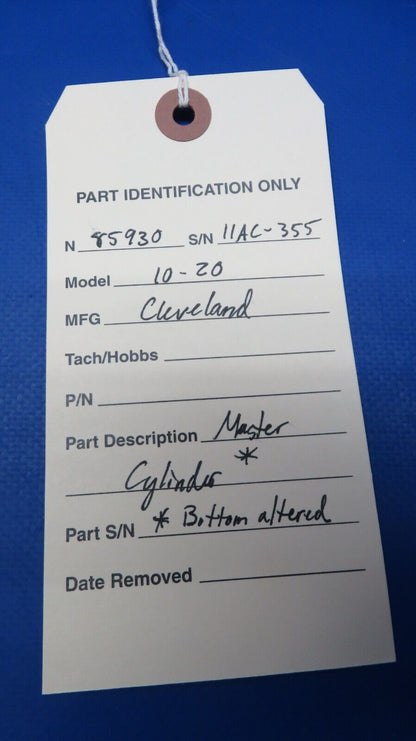 PART IDENTIFICATION ONLY
N 85930 S/N 11AC-355
Model 10-20
MFG Cleveland
Tach/Hobbs
P/N
Part Description Master
Cylinder *
Part S/N * Bottom altered
Date Removed